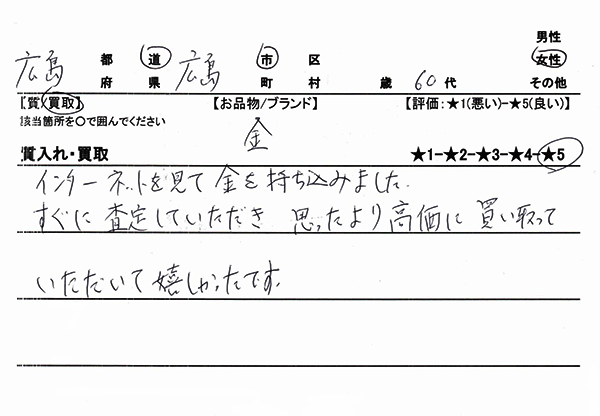 男性
広島 都 道 広島 市 区 女性
府 県 町 村 歳 60代 その他
【質 買取】 【お品物/ブランド】 【評価:★1(悪い)-★5(良い)】
該当箇所を〇で囲んでください
金
質入れ・買取 ★1-★2-★3-★4-★5
インターネットを見て金を持ち込みました.
すぐに査定していただき 思ったより高価に買い取って
いただいて嬉しかったです.